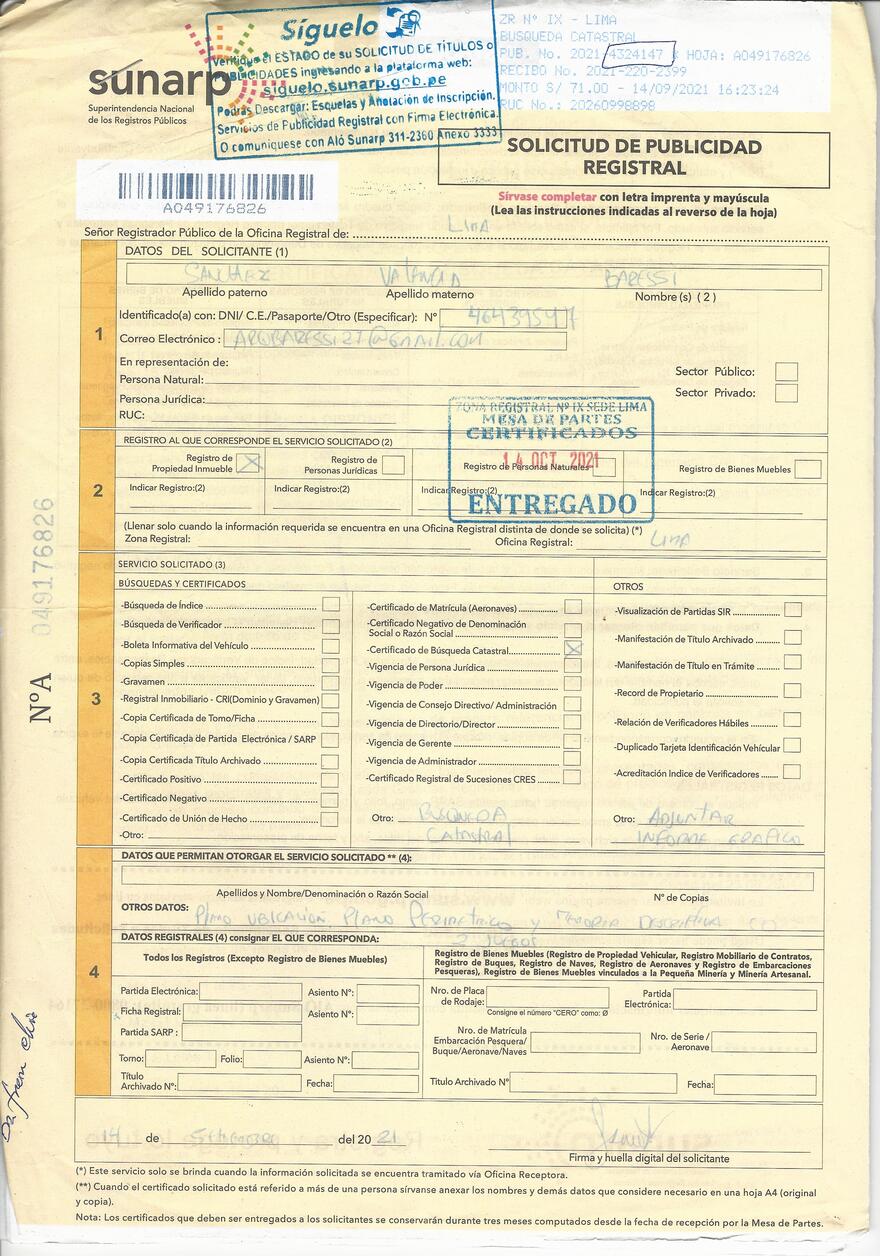 Síguelo
Verifique el ESTADO de su SOLICITUD DE TÍTULOS o
PUBLICIDADES ingresando a la plataforma web:
siguelo.sunarp.gob.pe
Podrás Descargar: Esquelas y Anotación de Inscripción.
Servicios de Publicidad Registral con Firma Electrónica.
O comuníquese con Aló Sunarp 311-2360 Anexo 3333
ZR Nº IX - LIMA
BUSQUEDA CATASTRAL
PUB. No. 2021-4324147 HOJA: A049176826
RECIBO No. 2021-220-2399
MONTO S/ 71.00 - 14/09/2021 16:23:24
RUC No.: 20260998898
sunarp
Superintendencia Nacional
de los Registros Públicos
SOLICITUD DE PUBLICIDAD
REGISTRAL
A049176826
Sírvase completar con letra imprenta y mayúscula
(Lea las instrucciones indicadas al reverso de la hoja)
Señor Registrador Público de la Oficina Registral de: LIMA
1
DATOS DEL SOLICITANTE (1)
SANCHEZ VALENCIA BARESSI
Apellido paterno Apellido materno Nombre(s) (2)
Identificado(a) con: DNI/ C.E./Pasaporte/Otro (Especificar): Nº 46439547
Correo Electrónico: ARQBARESSI27@GMAIL.COM
En representación de:
Sector Público:
Persona Natural:
Sector Privado:
Persona Jurídica:
RUC:
ZONA REGISTRAL Nº IX SEDE LIMA
MESA DE PARTES
CERTIFICADOS
14 OCT 2021
ENTREGADO
2
REGISTRO AL QUE CORRESPONDE EL SERVICIO SOLICITADO (2)
Registro de Propiedad Inmueble X Registro de Personas Jurídicas Registro de Personas Naturales Registro de Bienes Muebles
Indicar Registro:(2) Indicar Registro:(2) Indicar Registro:(2) Indicar Registro:(2)
(Llenar solo cuando la información requerida se encuentra en una Oficina Registral distinta de donde se solicita) (*)
Zona Registral: Oficina Registral: LIMA
3
SERVICIO SOLICITADO (3)
BÚSQUEDAS Y CERTIFICADOS
-Búsqueda de Índice
-Búsqueda de Verificador
-Boleta Informativa del Vehículo
-Copias Simples
-Gravamen
-Registral Inmobiliario - CRI(Dominio y Gravamen)
-Copia Certificada de Tomo/Ficha
-Copia Certificada de Partida Electrónica / SARP
-Copia Certificada Título Archivado
-Certificado Positivo
-Certificado Negativo
-Certificado de Unión de Hecho
-Otro:
-Certificado de Matrícula (Aeronaves)
-Certificado Negativo de Denominación
Social o Razón Social
-Certificado de Búsqueda Catastral X
-Vigencia de Persona Jurídica
-Vigencia de Poder
-Vigencia de Consejo Directivo/ Administración
-Vigencia de Directorio/Director
-Vigencia de Gerente
-Vigencia de Administrador
-Certificado Registral de Sucesiones CRES
Otro: BUSQUEDA
CATASTRAL
OTROS
-Visualización de Partidas SIR
-Manifestación de Título Archivado
-Manifestación de Título en Trámite
-Record de Propietario
-Relación de Verificadores Hábiles
-Duplicado Tarjeta Identificación Vehícular
-Acreditación Indice de Verificadores
Otro: ADJUNTAR
INFORME GRAFICO
4
DATOS QUE PERMITAN OTORGAR EL SERVICIO SOLICITADO ** (4):
Apellidos y Nombre/Denominación o Razón Social Nº de Copias
OTROS DATOS: PLANO UBICACION PLANO PERIMETRICO Y MEMORIA DESCRIPTIVA
2 JUEGOS
DATOS REGISTRALES (4) consignar EL QUE CORRESPONDA:
Todos los Registros (Excepto Registro de Bienes Muebles)
Partida Electrónica: Asiento Nº:
Ficha Registral: Asiento Nº:
Partida SARP :
Tomo: Folio: Asiento Nº:
Título
Archivado Nº: Fecha:
Registro de Bienes Muebles (Registro de Propiedad Vehicular, Registro Mobiliario de Contratos,
Registro de Buques, Registro de Naves, Registro de Aeronaves y Registro de Embarcaciones
Pesqueras), Registro de Bienes Muebles vinculados a la Pequeña Minería y Minería Artesanal.
Nro. de Placa
de Rodaje: Partida
Electrónica:
Consigne el número "CERO" como: Ø
Nro. de Matrícula
Embarcación Pesquera/
Buque/Aeronave/Naves Nro. de Serie /
Aeronave
Titulo Archivado Nº Fecha:
14 de Setiembre del 20 21
Firma y huella digital del solicitante
(*) Este servicio solo se brinda cuando la información solicitada se encuentra tramitado vía Oficina Receptora.
(**) Cuando el certificado solicitado está referido a más de una persona sírvanse anexar los nombres y demás datos que considere necesario en una hoja A4 (original
y copia).
Nota: Los certificados que deben ser entregados a los solicitantes se conservarán durante tres meses computados desde la fecha de recepción por la Mesa de Partes.
Nº A 049176826